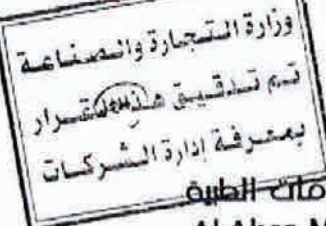 وزارة التجارة والصناعة
تم تدقيق هذا القرار
بمعرفة إدارة الشركات
الطبية